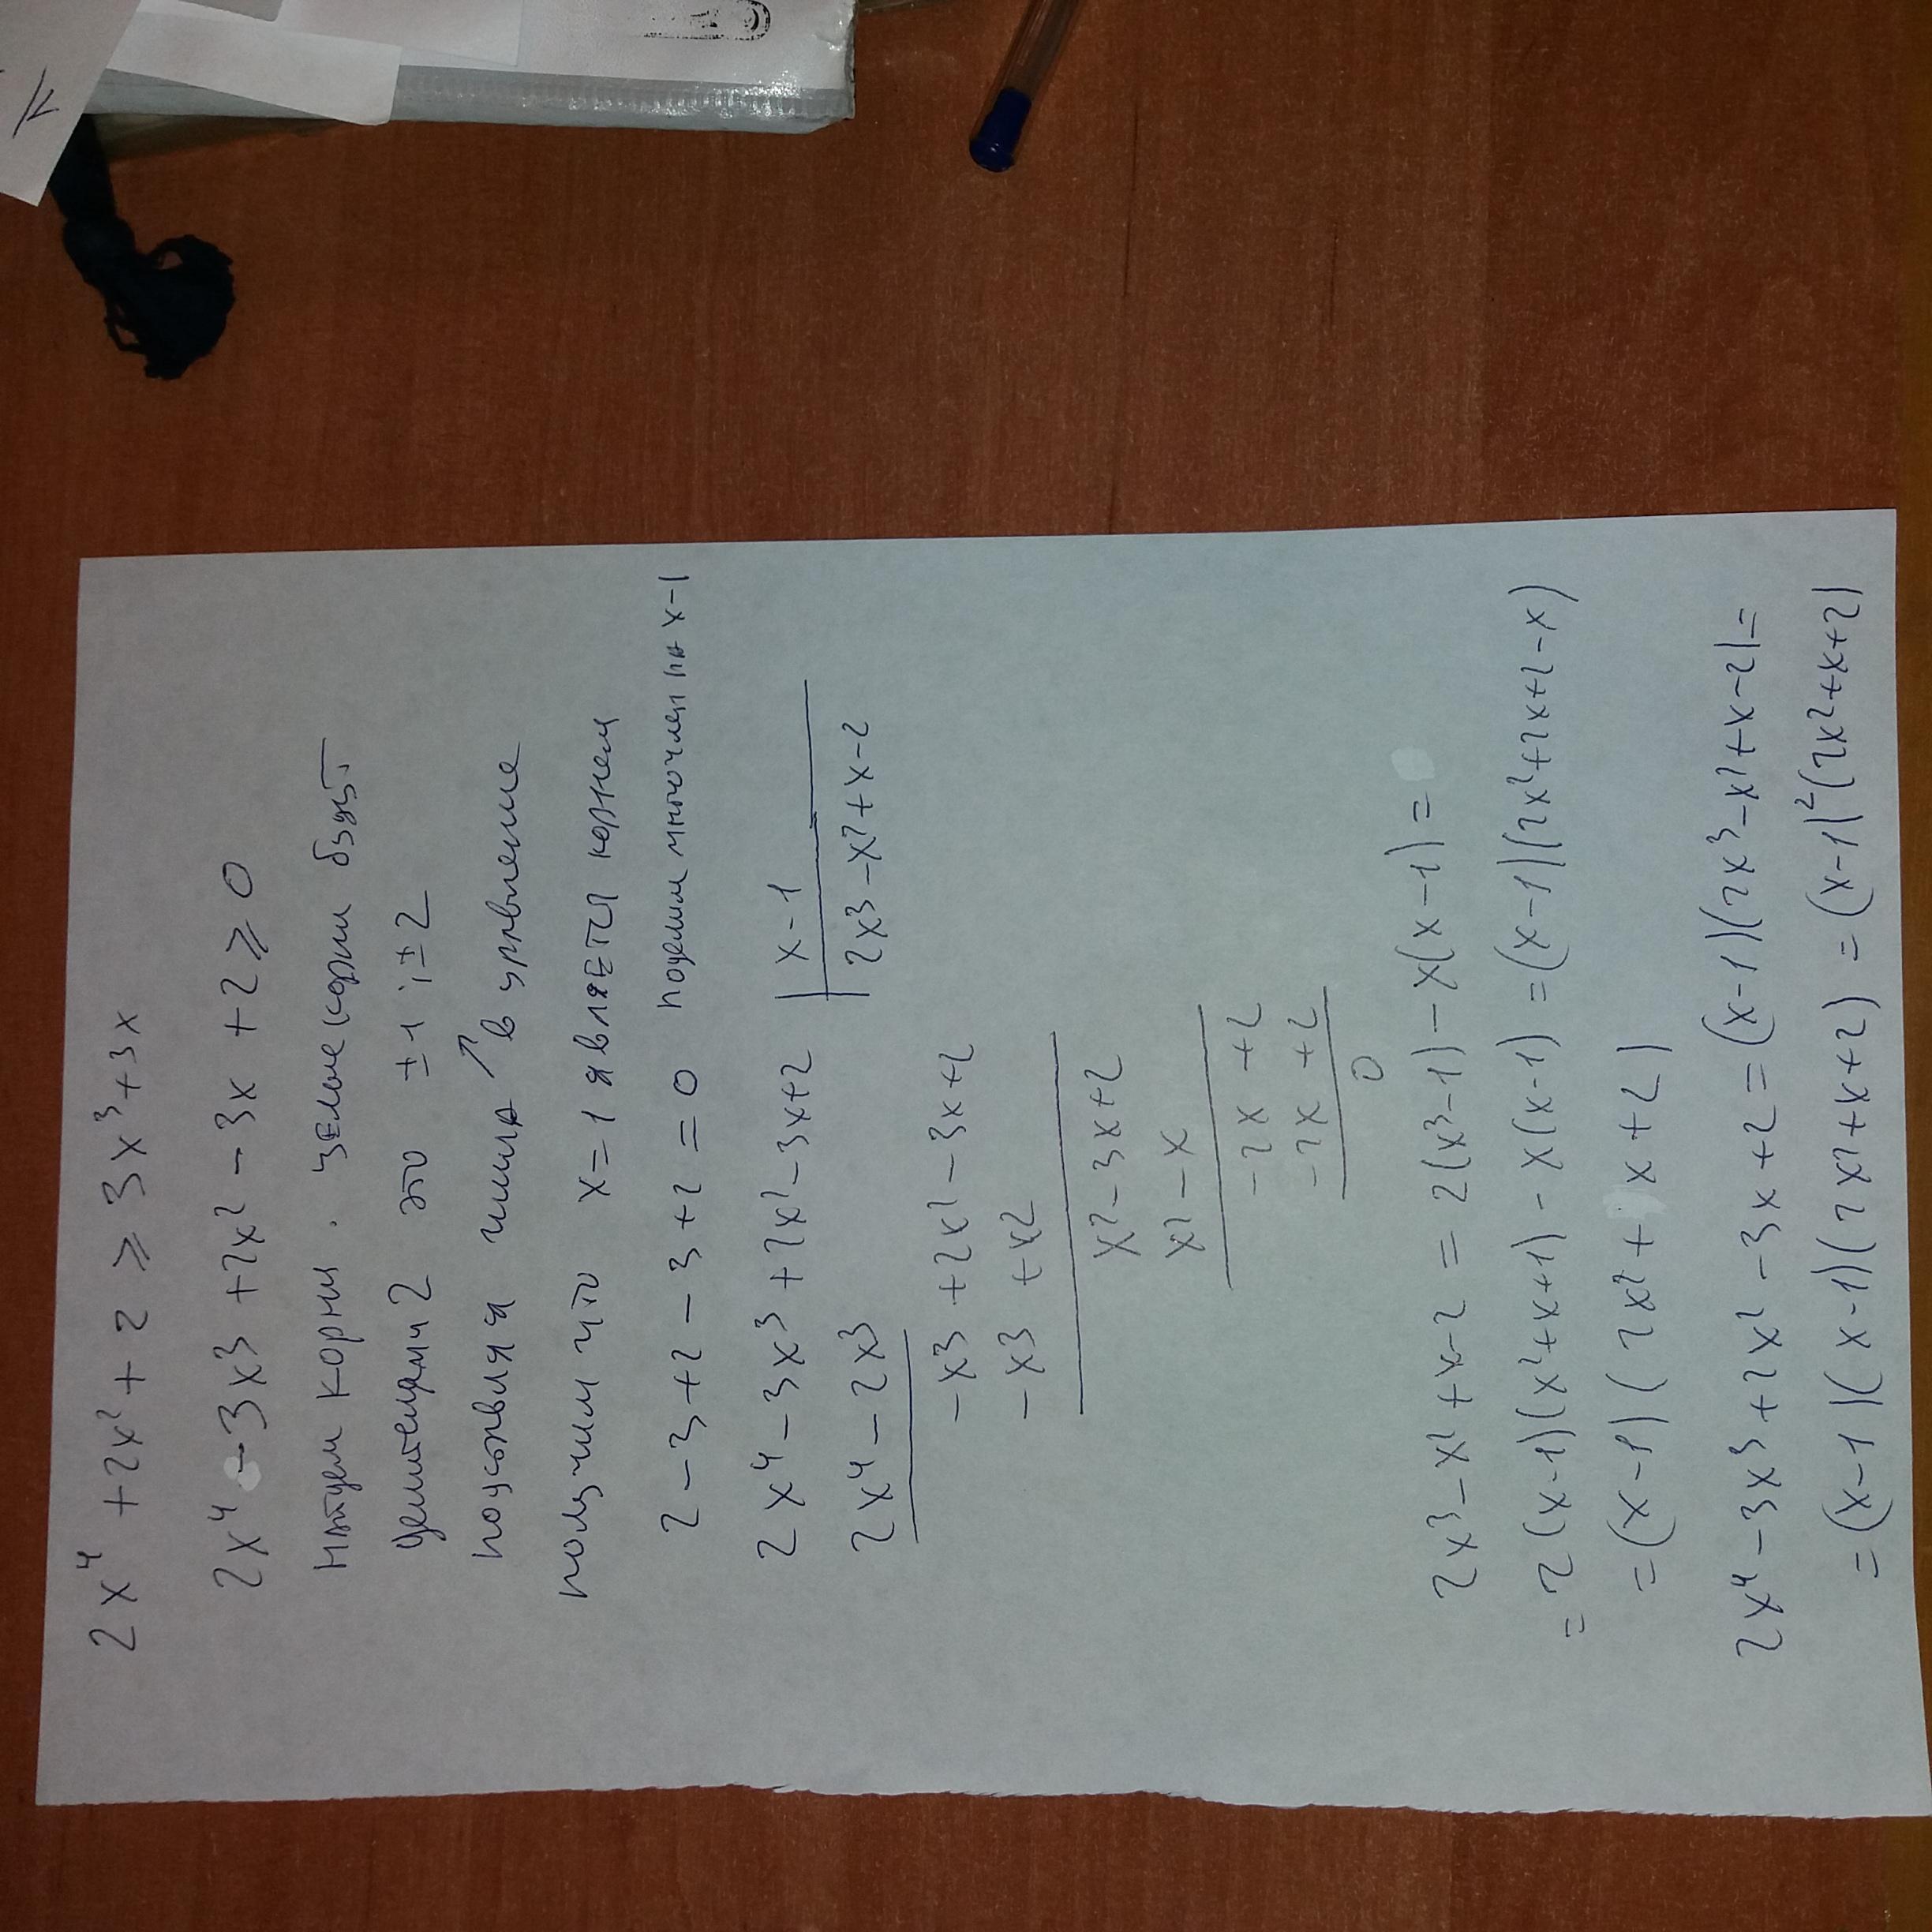 2x⁴ + 2x² + 2 ⩾ 3x³ + 3x
2x⁴ - 3x3 + 2x² - 3x + 2 ⩾ 0
Найдем корни. целые корни будут
делителями 2 это ±1 ; ±2
подставляя числа в уравнение
получим что x = 1 является корнем
2 - 3 + 2 - 3 + 2 = 0 поделим многочлен на x-1
2x⁴ - 3x³ + 2x² - 3x + 2 | x - 1
2x⁴ - 2x3 2x3 - x² + x - 2
-x3 + 2x² - 3x + 2
-x3 + x2
x² - 3x + 2
x² - x
-2x + 2
-2x + 2
0
2x³ - x² + x - 2 = 2(x³ - 1) - x(x - 1) =
= 2(x-1)(x²+x+1) - x(x-1) = (x-1)(2x²+2x+2-x)
= (x-1)(2x² + x + 2)
2x⁴ - 3x³ + 2x² - 3x + 2 = (x-1)(2x³ - x² + x - 2) =
= (x-1)(x-1)(2x² + x + 2) = (x-1)²(2x² + x + 2)